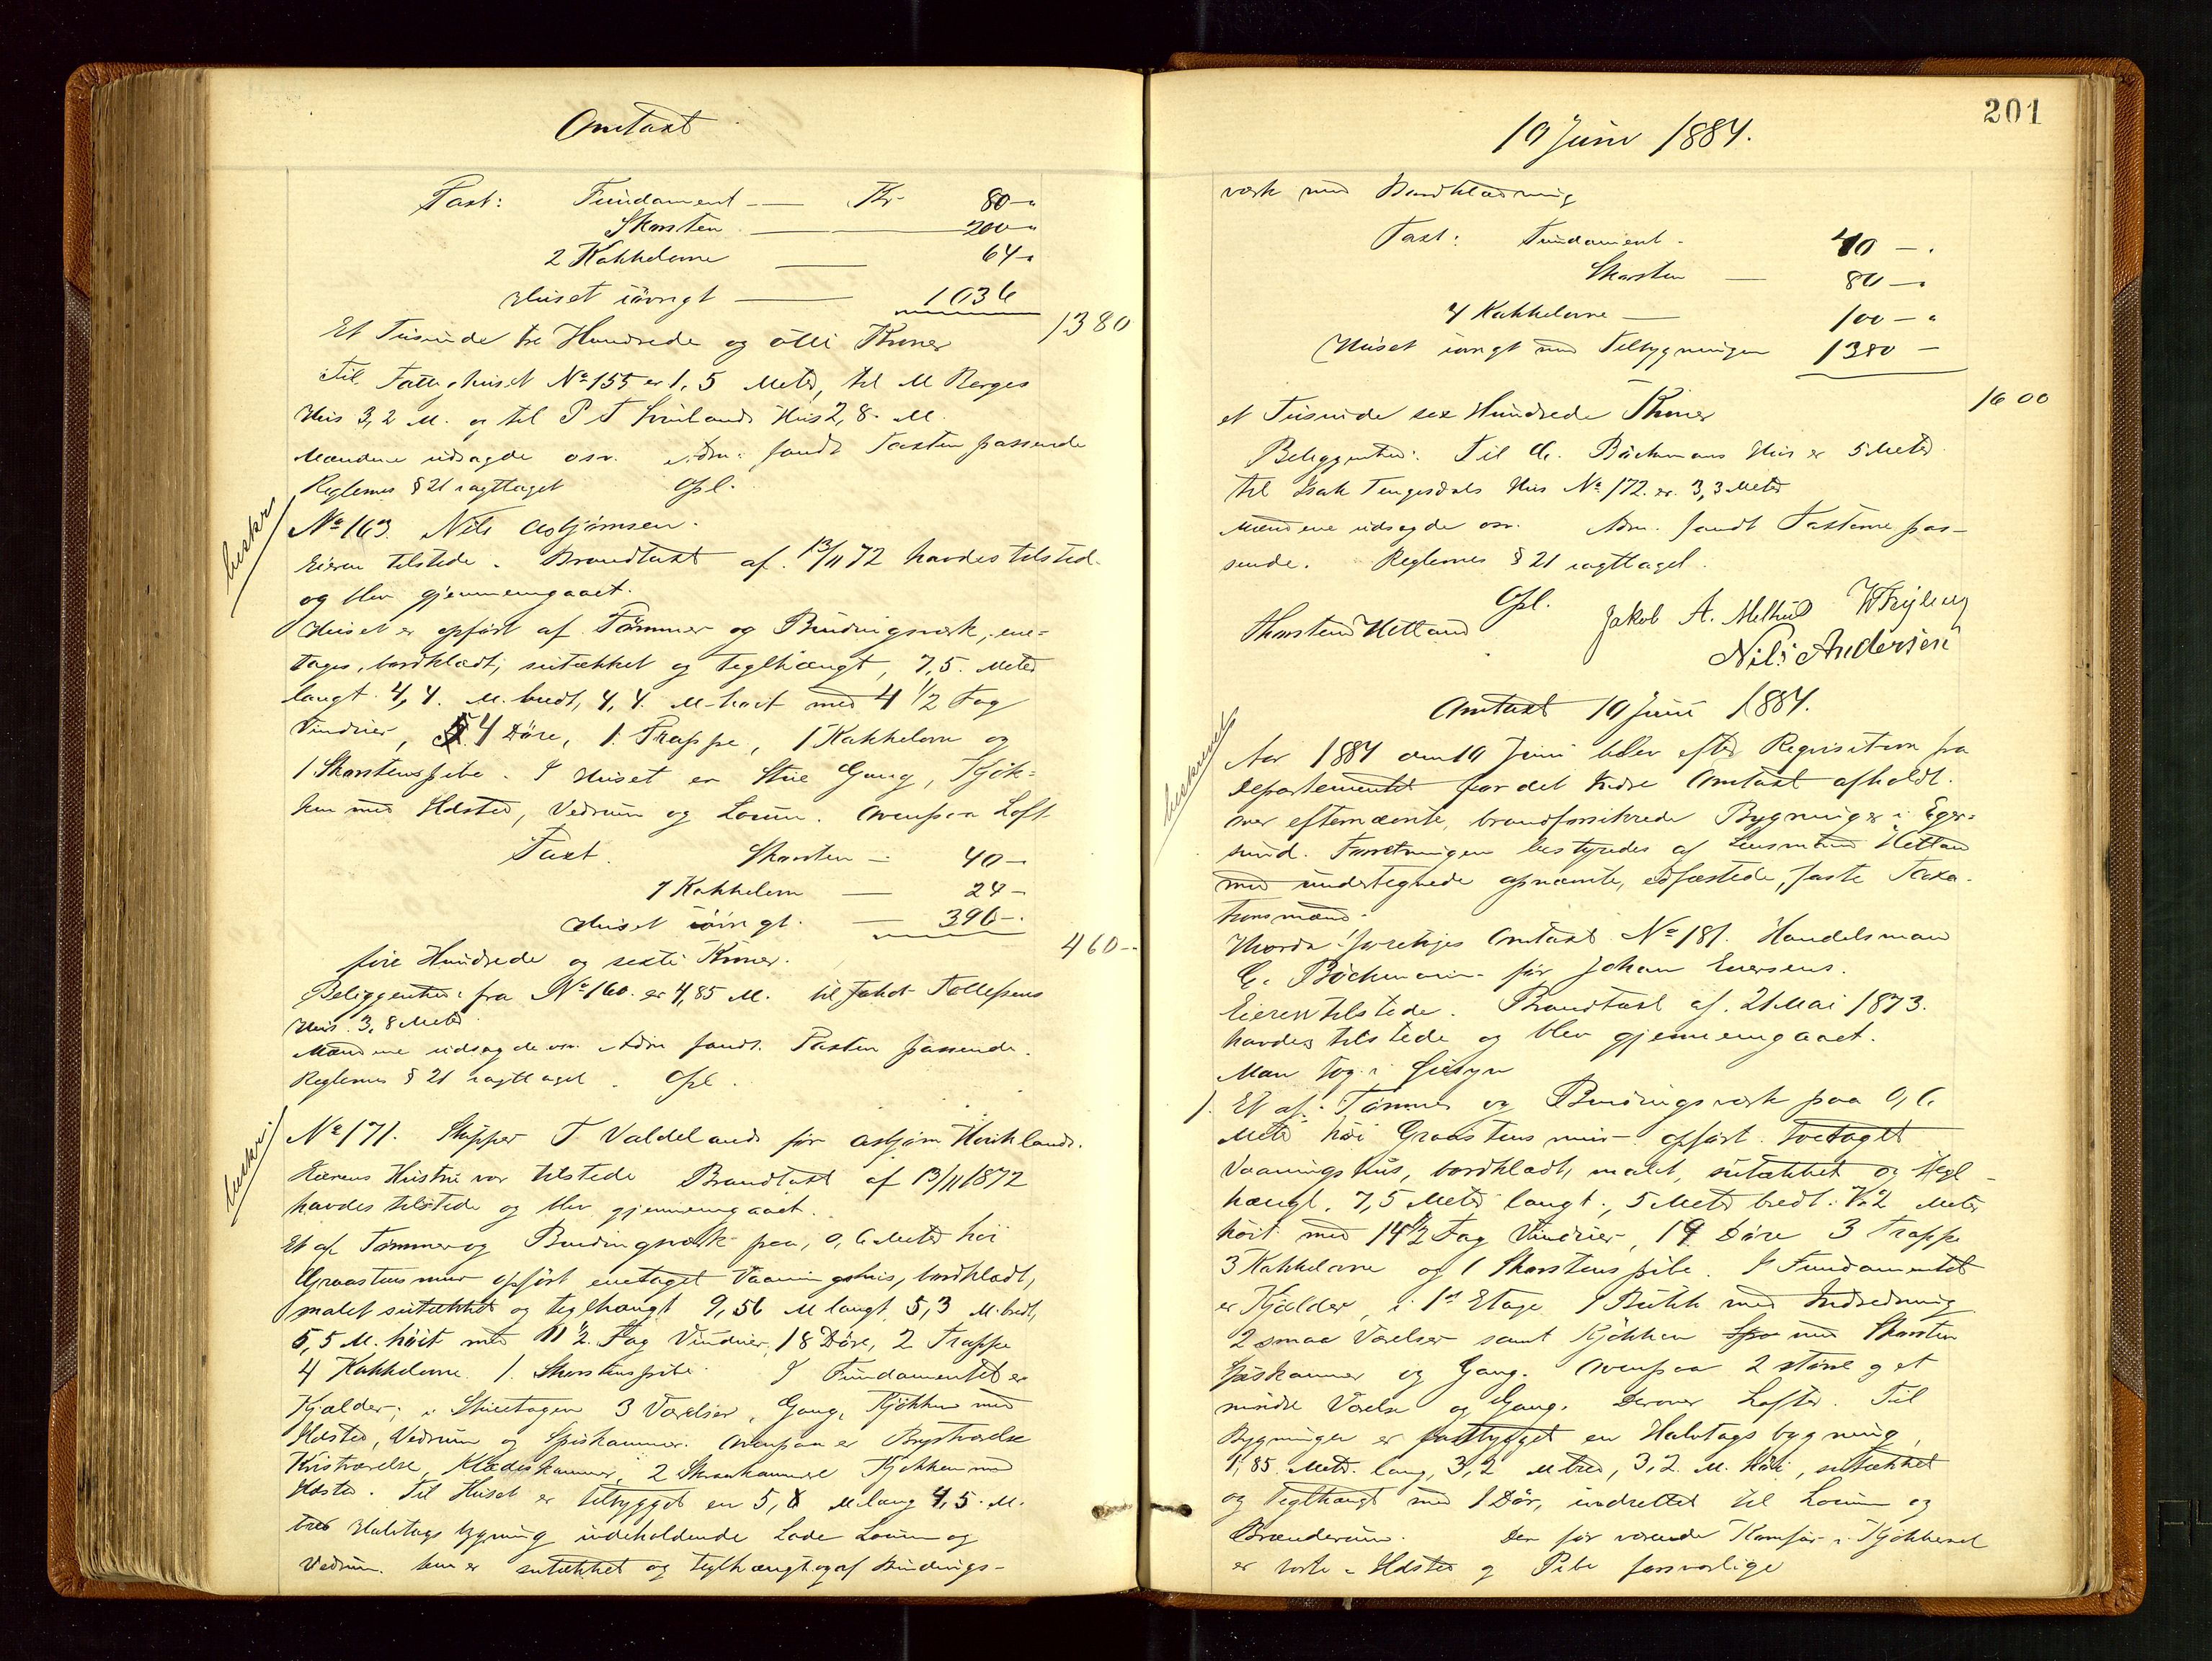 Omtaxt
Taxt: Fundament — Kr 80 - "
Skorsten — 200 - "
2 Kakkelovne — 64 - "
Huset iövrigt — 1036
1380
Et Tusinde tre Hundrede og otti Kroner
Til Fattighuset No 155 er 1,5 Meter, til M Berges
Hus 3,2 M. og til P T Hus 2,8 M.
Mændene udsagde osv. Adm. fandt Taxten passende
Reglernes § 21 iagttaget Opl.
beskr
No 163. Nils Asbjörnsen.
Eieren tilstede. Brandtaxt af 13/11 72 havdes tilsted.
og blev gjennemgaaet.
Huset er opfört af Tömmer og Bindingsværk, ene-
tages, bordklædt, sutækket og teglhængt, 7,5 Meter
langt 4,4. M. bredt, 4,4. M höit med 4 1/2 Fag
Vinduer, 4 Döre, 1 Trappe, 1 Kakkelovn og
1 Skorstenspibe. I Huset er Stue Gang, Kjök-
ken med Ildsted, Vedrum og Locum. Ovenpaa Loft
Taxt. Skorsten — 40 -
1 Kakkelovn — 24 -
Huset iövrigt — 396 -
460 -
fire Hundrede og sexti Kroner.
Beliggenhed: fra No 160 er 4,85 M. til Jakob Tollefsens
Hus 3,8 Meter
Mændene udsagde osv. Adm fandt Taxten passende.
Reglernes § 21 iagttaget. Opl.
beskr.
No 171. Skipper T Valdelands för Asbjörn Kviklands.
Eierens Hustru var tilstede Brandtaxt af 13/11 1872
havdes tilstede og blev gjennemgaaet.
Et af Tömmer og Bindingsværk paa 0,6 Meter höi
Graastensmur opfört enetaget Vaaningshus, bordklædt,
malet sutækket og teglhængt 9,56 M langt 5,3 M. bredt,
5,5 M. höit med 11 1/2 Fag Vinduer, 18 Döre, 2 Trappe
4 Kakkelovne 1. Skorstenspibe. I Fundamentet er
Kjælder, i Stueetagen 3 Værelser, Gang, Kjökken med
Ildsted, Vedrum og Spiskammer. Ovenpaa er Brystværelse
Kvistværelse, Klædeskammer, 2 Skraakammere Kjökken med
Ildsted. Til Huset er tilbygget en 5,8 M lang 4,5 M.
bred Halvtags bygning indeholdende Lade Locum og
Vedrum. hun er sutækket og teglhængt og af Bindings-
201
10 Juni 1884.
værk med Bordklædning
Taxt: Fundament - 40 - "
Skorsten — 80 - "
4 Kakkelovne — 100 - "
Huset iövrigt med Tilbygningen 1380 -
1600
et Tusinde sex Hundrede Kroner
Beliggenhed: Til C. Böckmans Hus er 5 Meter
til Isak Tengesdals Hus No 172 er 3,3 Meter
Mændene udsagde osv. Adm. fandt Taxterne pas-
sende. Reglernes § 21 iagttaget.
Opl.
Thorstend Hetland Jakob A. Melhus
Nils Andersen
Omtaxt 10 Juni 1884.
beskrevet
Aar 1884 den 10 Juni blev efter Requisition fra
Departementet for det Indre Omtaxt afholdt
over efternævnte, brandforsikrede Bygninger i Eger-
sund. Forretningen bestyredes af Lensmand Hetland
med undertegnede opnævnte, edfæstede, faste Taxa-
tionsmænd.
Hvorda foretoges Omtaxt No 181. Handelsmand
C. Böckmann för Johan Eversens.
Eieren tilstede. Brandtaxt af 21 Mai 1873.
havdes tilstede og blev gjennemgaaet.
Man tog i Öiesyn
1. Et af Tömmer og Bindingsværk paa 0,6
Meter höi Graastens mur opfört toetaget
Vaaningshus, bordklædt, malet, sutækket og tegl-
hængt. 7,5 Meter langt, 5 Meter bredt, 7,2 Meter
höit med 14 1/2 Fag Vinduer, 19 Döre 3 Trappe
3 Kakkelovne og 1 Skorstenspibe. I Fundamentet
er Kjælder, i 1st Etage 1 Butik med Indredning
2 smaa Værelser samt Kjökken Spi med Skorsten
Spiskammer og Gang. Ovenpaa 2 större og et
mindre Værelse og Gang. Derover Lofter. Til
Bygningen er fastbygget en Halvtags bygning,
1,85 Meter lang, 3,2 M bred, 3,2. M. Höi, sutækket
og teglhængt med 1 Dör, indrettet til Locum og
Brænderum. Den för værende Komfur i Kjökkenet
er borte. Ildsted og Pibe forsvarlige